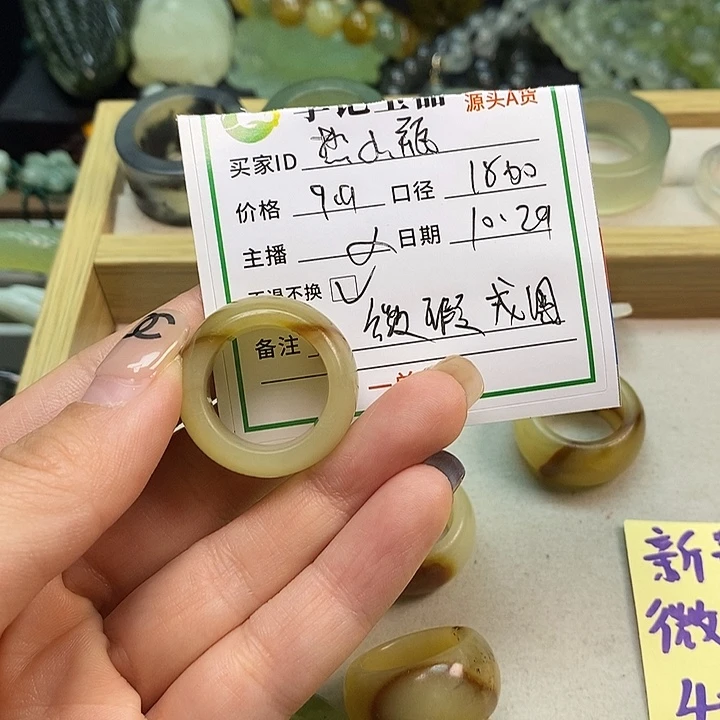 源头A货
买家ID
价格 99 口径 18.00
主播 日期 10.29
不退不换
备注 微瑕 戒圈
一单
新
微
4